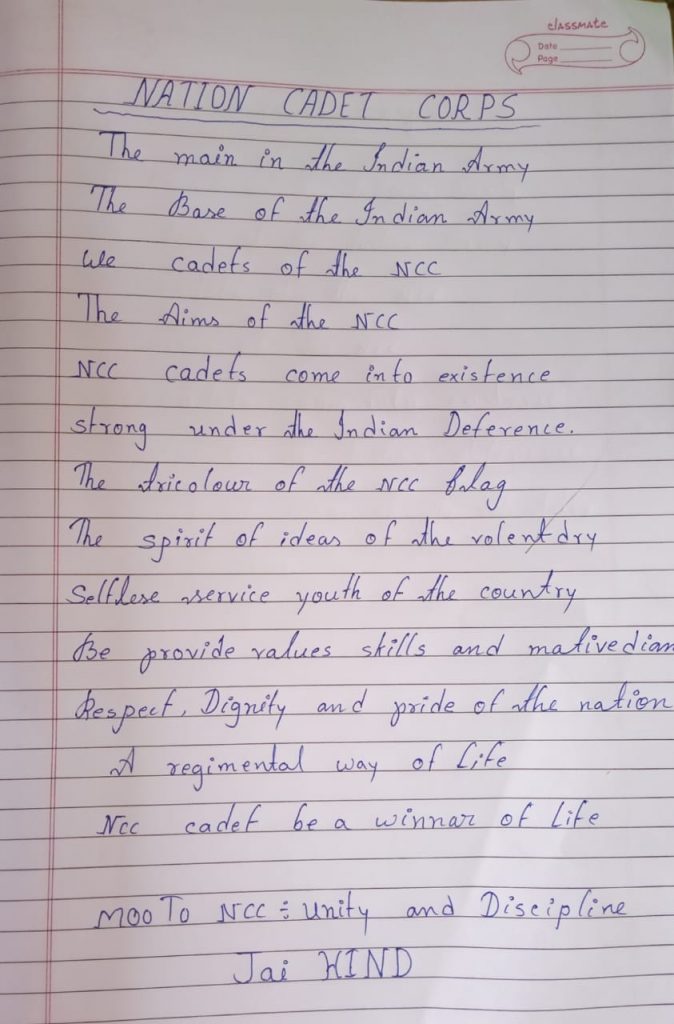 classmate
Date
Page
NATION CADET CORPS
The main in the Indian Army
The Base of the Indian Army
We cadets of the NCC
The Aims of the NCC
NCC cadets come into existence
strong under the Indian Deference.
The tricolour of the NCC flag
The spirit of ideas of the volentdry
Selflese service youth of the country
Be provide values skills and mativedian
Respect, Dignity and pride of the nation
A regimental way of Life
Ncc cadet be a winnar of Life
MooTo NCC ÷ Unity and Discipline
Jai HIND